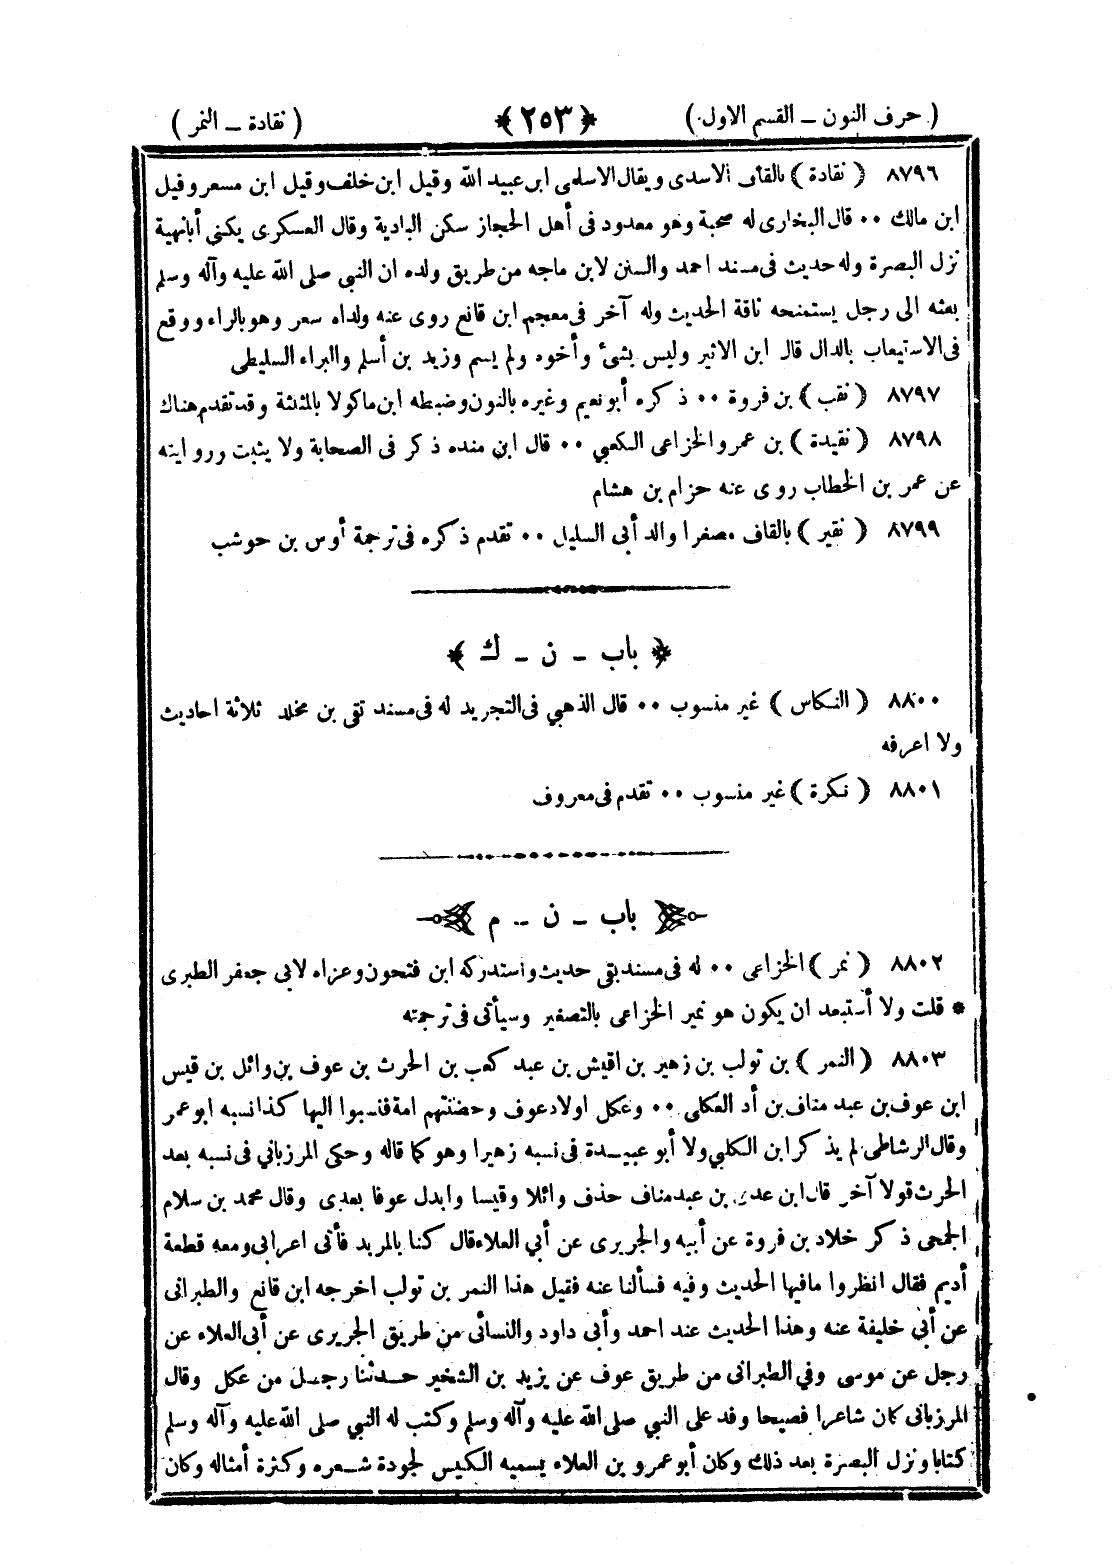 ( حرف النون – القسم الاول ) ﴿ ٢٥٣ ﴾ ( نقادة – النمر )
٨٧٩٦ ( نقادة ) بالقاف الاسدى ويقال الاسلمى ابن عبيد الله وقيل ابن خلف وقيل ابن مسعر وقيل
ابن مالك ٠٠ قال البخارى له صحبة وهو معدود فى أهل الحجاز سكن البادية وقال العسكرى يكنى أبانهية
نزل البصرة وله حديث فى مسند احمد والسنن لابن ماجه من طريق ولده ان النبي صلى الله عليه وآله وسلم
بعثه الى رجل يستمنحه ناقة الحديث وله آخر فى معجم ابن قانع روى عنه ولداه سعر وهو بالراء ووقع
فى الاستيعاب بالدال قال ابن الاثير وليس بشئ وأخوه ولم يسم وزيد بن أسلم والبراء السليطى
٨٧٩٧ ( نقب ) بن فروة ٠٠ ذكره أبو نعيم وغيره بالنون وضبطه ابن ماكولا بالمثلثة وقد تقدم هناك
٨٧٩٨ ( نقيدة ) بن عمرو الخزاعى الكعبي ٠٠ قال ابن منده ذكر فى الصحابة ولا يثبت وروايته
عن عمر بن الخطاب روى عنه حزام بن هشام
٨٧٩٩ ( نقير ) بالقاف مصغرا والد أبى السليل ٠٠ تقدم ذكره فى ترجمة أوس بن حوشب
﴿ باب - ن - ك ﴾
٨٨٠٠ ( النكاس ) غير منسوب ٠٠ قال الذهبي فى التجريد له فى مسند تقى بن مخلد ثلاثة احاديث
ولا اعرفه
٨٨٠١ ( نكرة ) غير منسوب ٠٠ تقدم فى معروف
باب - ن - م
٨٨٠٢ ( نمر ) الخزاعى ٠٠ له فى مسند بقى حديث واستدركه ابن فتحون وعزاه لابى جعفر الطبرى
* قلت ولا أستبعد ان يكون هو نمير الخزاعى بالتصغير وسيأتى فى ترجمته
٨٨٠٣ ( النمر ) بن تولب بن زهير بن اقيش بن عبد كعب بن الحرث بن عوف بن وائل بن قيس
ابن عوف بن عبد مناف بن أد العكلى ٠٠ وعكل اولاد عوف وحضنتهم امة فنسبوا اليها كذا نسبه ابو عمر
وقال الرشاطى لم يذكر ابن الكلبي ولا أبو عبيدة فى نسبه زهيرا وهو كما قاله وحكى المرزباني فى نسبه بعد
الحرث قولا آخر قال ابن عدى بن عبد مناف حذف وائلا وقيسا وابدل عوفا بعدى وقال محمد بن سلام
الجمحى ذكر خلاد بن فروة عن أبيه والجريرى عن أبي العلاء قال كنا بالمربد فأتى اعرابى ومعه قطعة
أديم فقال انظروا مافيها الحديث وفيه فسألنا عنه فقيل هذا النمر بن تولب اخرجه ابن قانع والطبرانى
عن أبي خليفة عنه وهذا الحديث عند احمد وأبى داود والنسائى من طريق الجريرى عن أبى العلاء عن
رجل عن موسى وفي الطبرانى من طريق عوف عن يزيد بن الشخير حدثنا رجل من عكل وقال
المرزبانى كان شاعرا فصيحا وفد على النبي صلى الله عليه وآله وسلم وكتب له النبي صلى الله عليه وآله وسلم
كتابا ونزل البصرة بعد ذلك وكان أبو عمرو بن العلاء يسميه الكيس لجودة شعره وكثرة أمثاله وكان